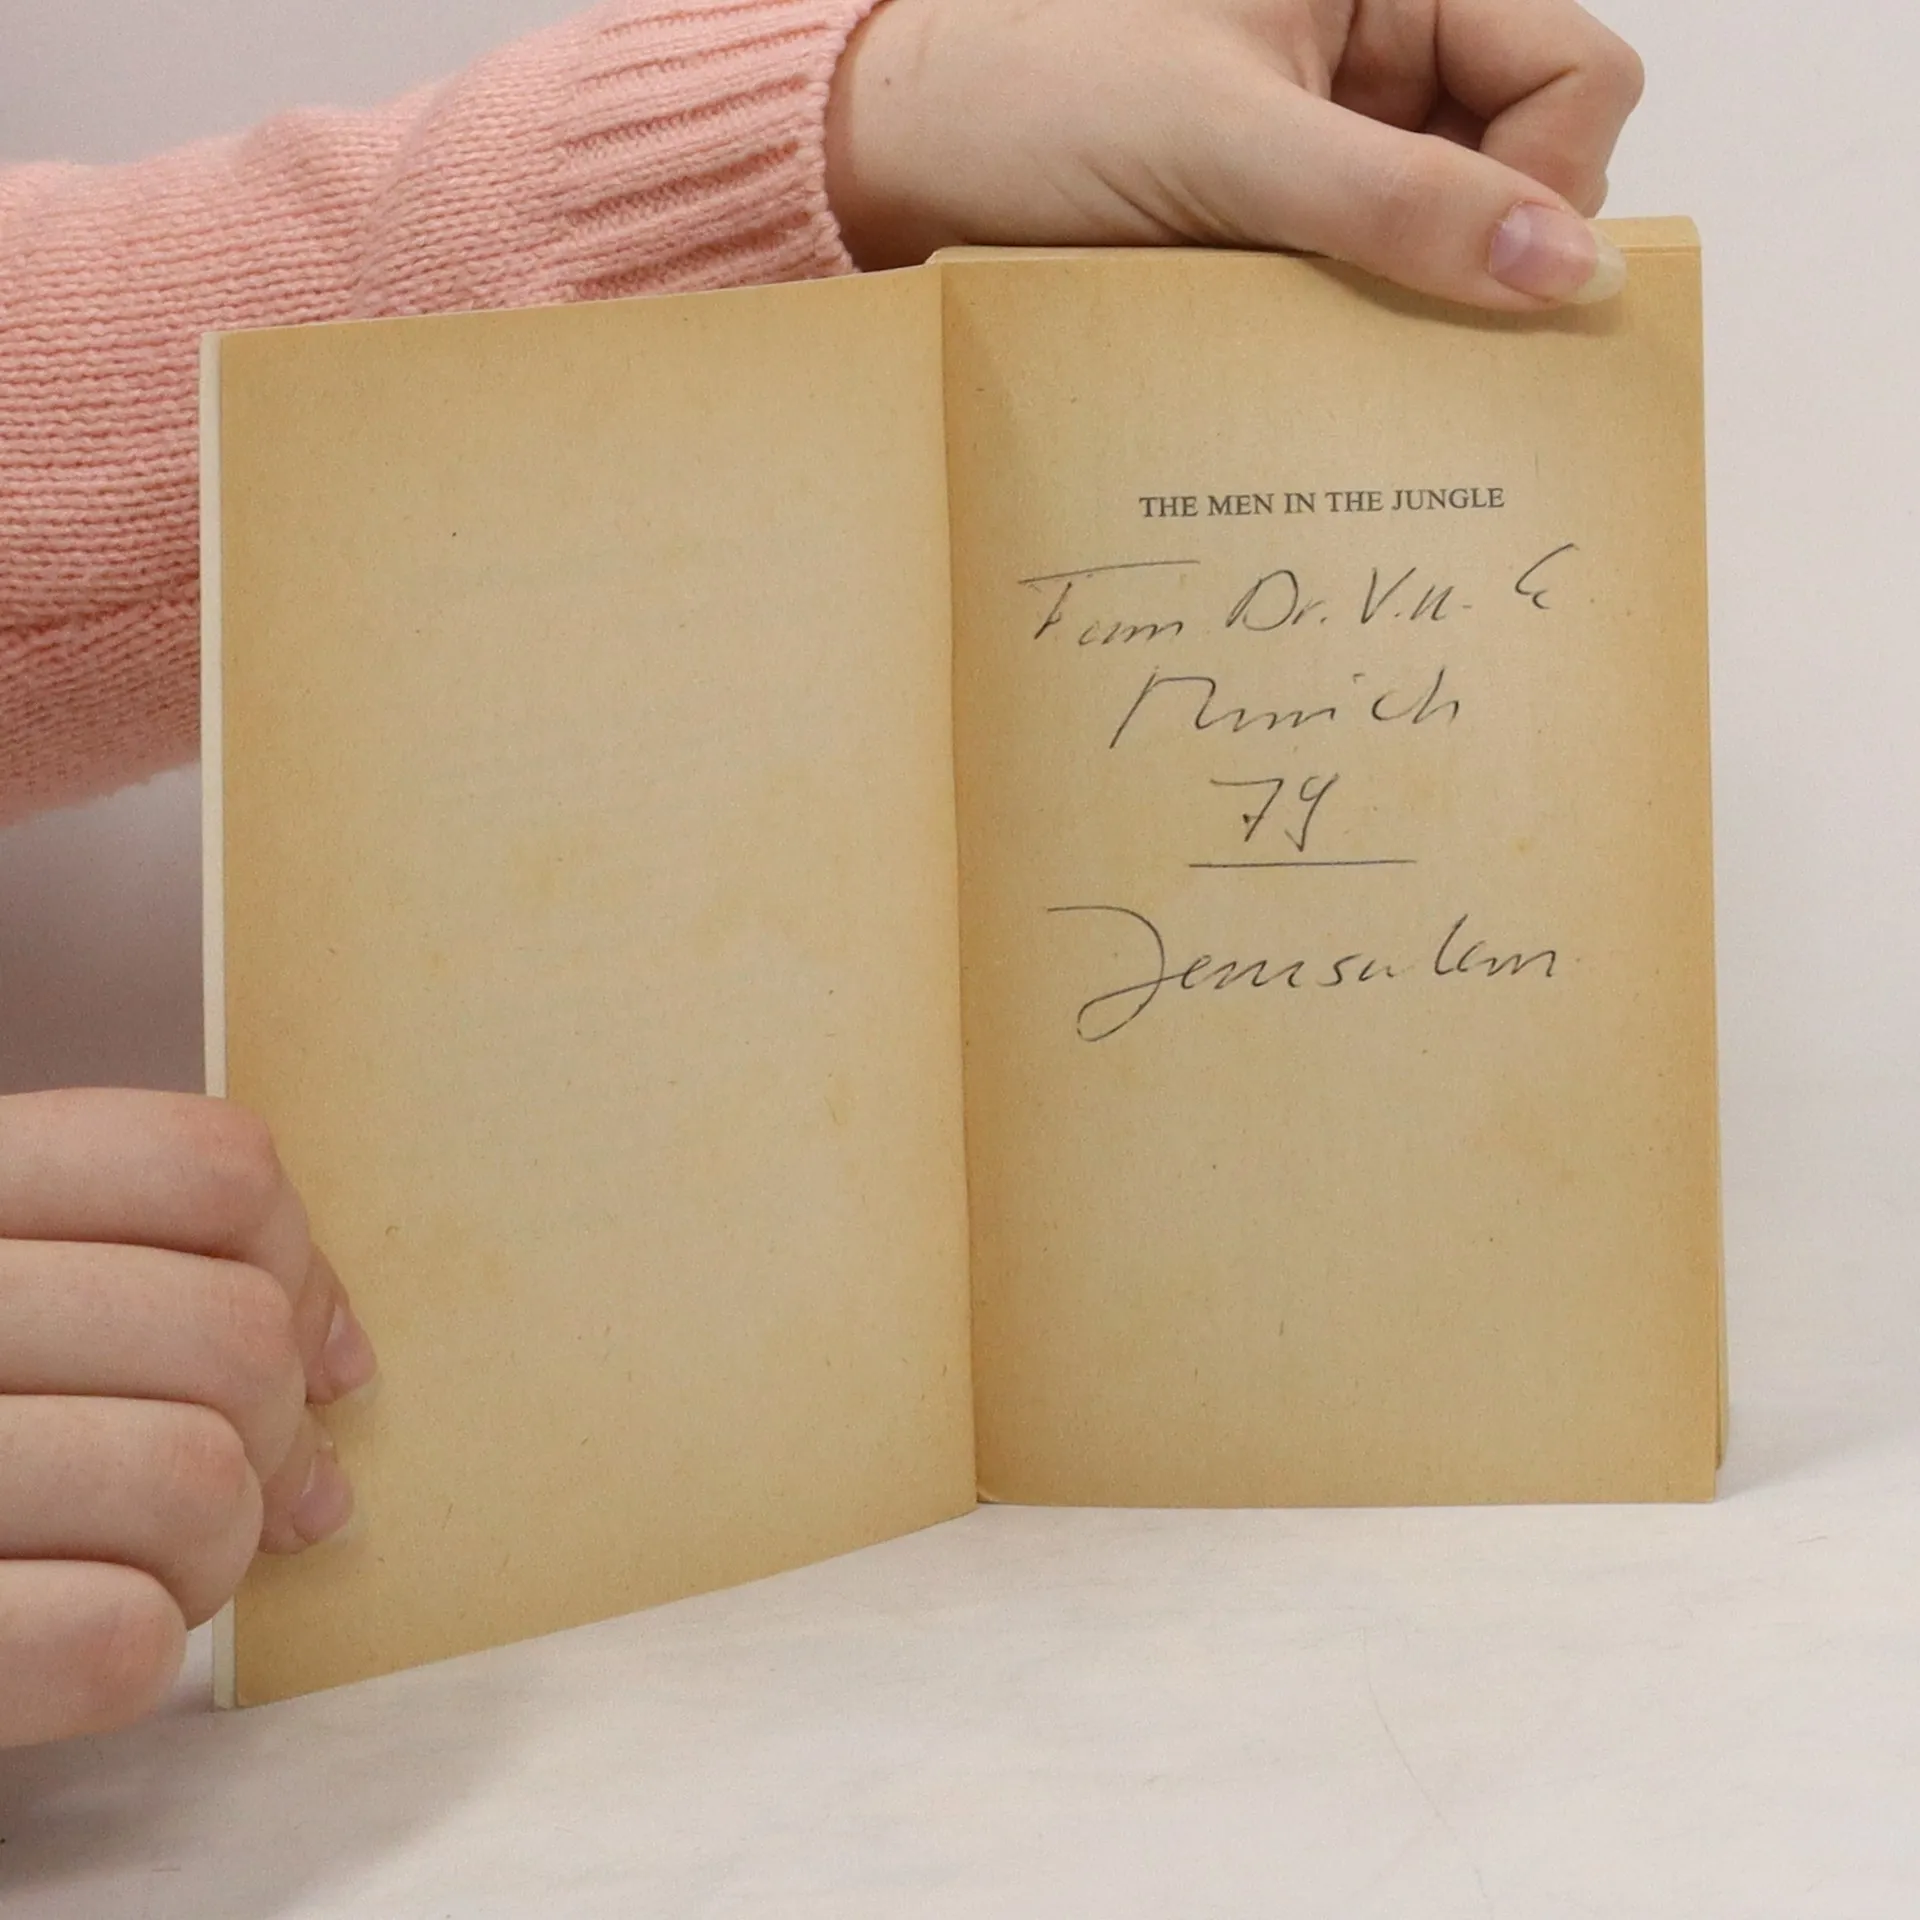 THE MEN IN THE JUNGLE
Fam Dr. V. u. E
Munich
79
Jerusalem